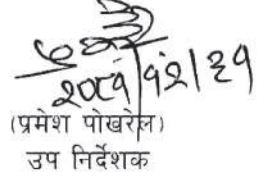 २०८१/१२/३१
(प्रमेश पोखरेल)
उप निर्देशक